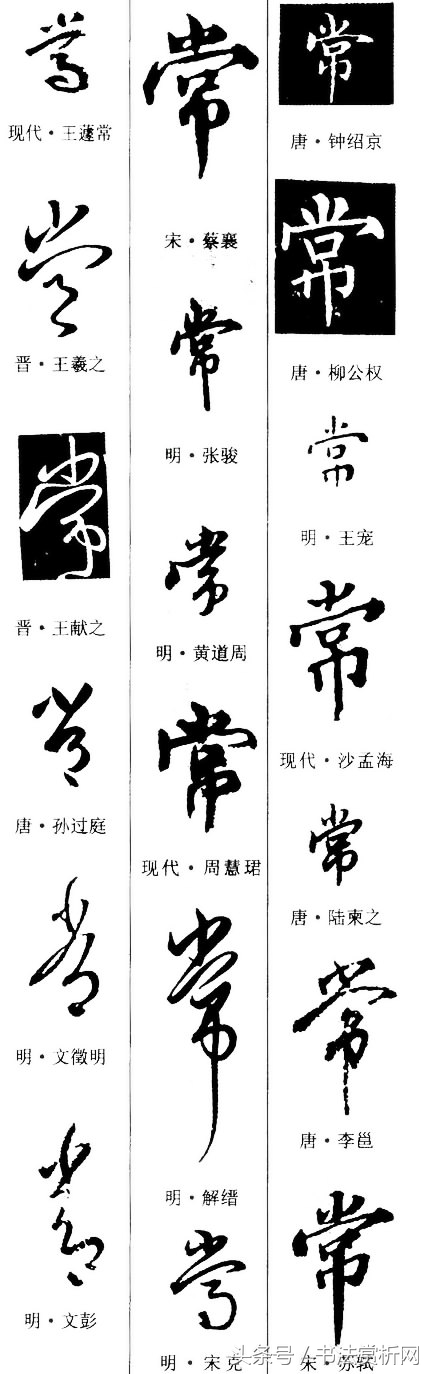 常
现代·王蘧常
常
晋·王羲之
常
晋·王献之
常
唐·孙过庭
常
明·文徵明
常
明·文彭
常
宋·蔡襄
常
明·张骏
常
明·黄道周
常
现代·周慧珺
常
明·解缙
常
明·宋克
常
唐·钟绍京
常
唐·柳公权
常
明·王宠
常
现代·沙孟海
常
唐·陆柬之
常
唐·李邕
常
宋·苏轼
头条号/书法赏析网